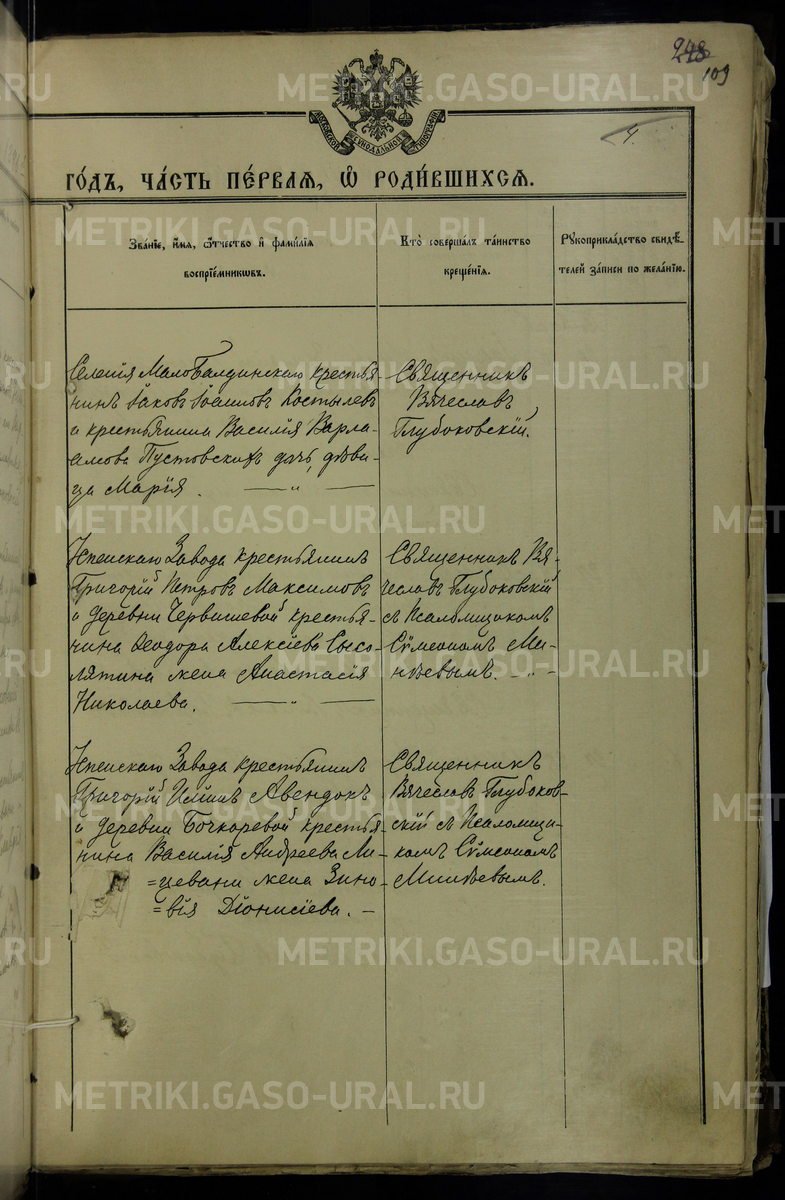 248
109
4.
МОСКОВСКОЙ СѴНОДАЛЬНОЙ ТИПОГРАФІИ
ГО́ДЪ, ЧА́СТЬ ПЕ́РВАѦ, Ѽ РОДИ́ВШИХСѦ.
Зва́нїе, и́мѧ, ѻ҆́тчество и҆ фами́лїѧ
воспрїе́мникѡвъ.
Кто̀ соверша́лъ та́инство
креще́нїѧ.
Рꙋкоприкла́дство свидѣ́-
телей за́писи по жела́нїю.
Селенія Мало Балдинскаго крестья-
нинъ Іаковъ Іоанновъ Костылевъ
и крестьянина Василія Варла-
амова Пустовскихъ дочь, дѣви-
ца Марія. — „ —
Священникъ
Вячеславъ
Глубоковскій.
Завода крестьянинъ
Григорій Петровъ Максимовъ
и деревни Червишевой крестья-
нина Ѳеодора Алексѣева Сысо-
лятина жена Анастасія
Николаева. — „ —
Священникъ Вя-
чеславъ Глубоковскій
съ Псаломщикомъ
Сѵмеономъ Ми-
нѣевымъ. - „ -
Завода крестьянинъ
Григорій Ильинъ
и деревни Бочкаревой крестья-
нина Василія Андреева Ми-
=цевани жена Зино-
=вія Діонисіева. —
Священникъ
Вячеславъ Глубоков-
скій съ Псаломщи-
комъ Сѵмеономъ
Минѣевымъ.
METRIKI.GASO-URAL.RU